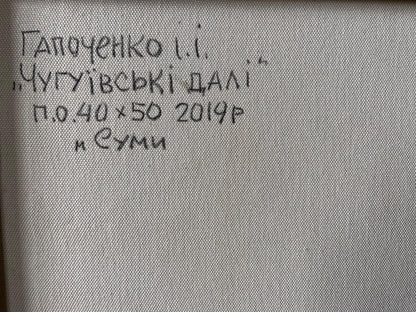 Гапоченко І.І.
„Чугуївські далі"
п.о. 40×50 2019р
м Суми